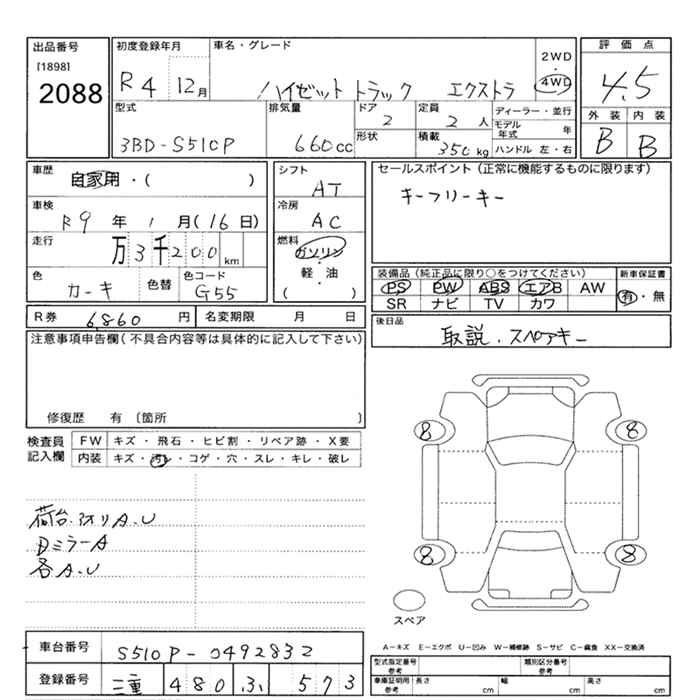 出品番号
[1898]
2088
初度登録年月
R 4 12月
車名・グレード
ハイゼット トラック エクストラ
2WD
・
4WD
評価点
4.5
型式
3BD-S510P
排気量
660cc
ドア
2
形状
定員
2 人
積載
350 kg
ディーラー・並行
モデル年式 年
ハンドル 左・右
外装 内装
B B
車歴
自家用・( )
車検
R9 年 1 月(16日)
走行
万3千200 km
色
カーキ
色替
色コード
G55
シフト
AT
冷房
AC
燃料
ガソリン
・
軽油
( )
セールスポイント(正常に機能するものに限ります)
キーフリーキー
装備品(純正品に限り○をつけてください)
PS PW ABS エアB AW
SR ナビ TV カワ
新車保証書
有・無
R券 6,860 円
名変期限 月 日
後日品
取説.スペアキー
注意事項申告欄(不具合内容等は具体的に記入して下さい)
修復歴 有〔箇所 〕
検査員記入欄
FW キズ・飛石・ヒビ割・リペア跡・X要
内装 キズ・汚レ・コゲ・穴・スレ・キレ・破レ
荷台.アオリA.U
DミラーA
各A.U
8 8
8 8
スペア
A-キズ E-エクボ U-凹み W-補修跡 S-サビ C-腐食 XX-交換済
車台番号
S510P-0492832
登録番号
三重 480 ふ 573
型式指定番号 参考
類別区分番号 参考
車庫証明用 参考
長さ cm 幅 cm 高さ cm